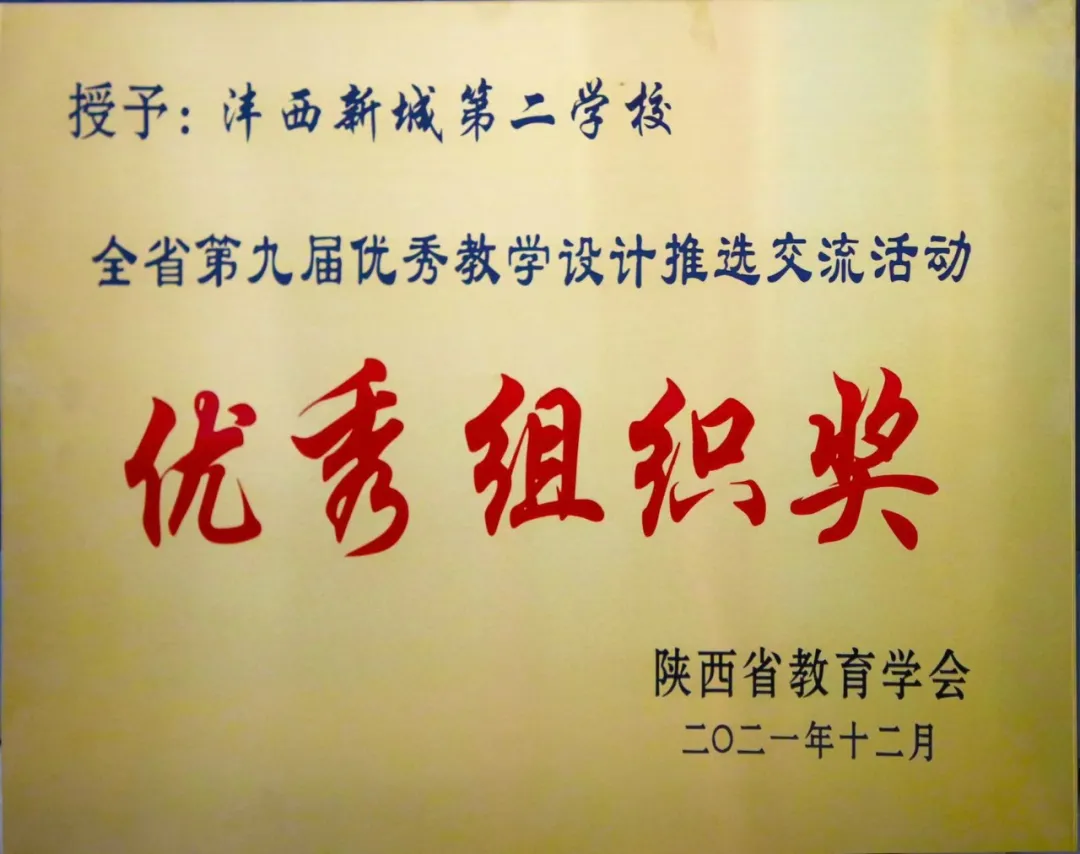 授予：沣西新城第二学校
全省第九届优秀教学设计推选交流活动
优秀组织奖
陕西省教育学会
二〇二一年十二月